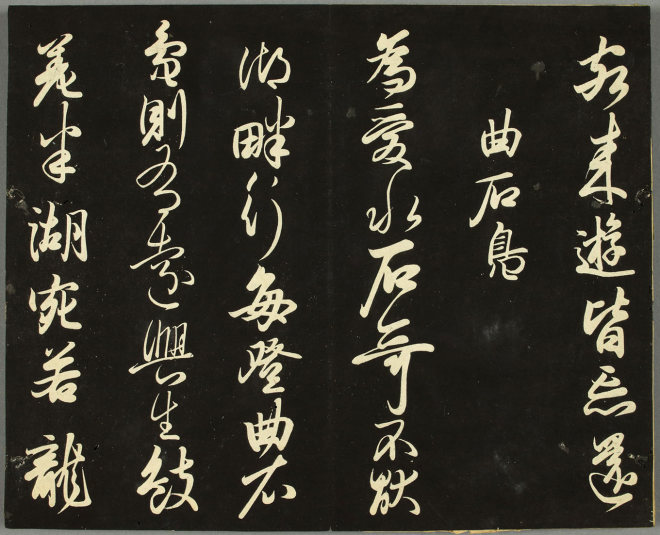 客来遊皆忘還
曲石島
為愛水石奇不厭
湖畔行每登曲石
島則有遠興生鼓
半湖宛若龍